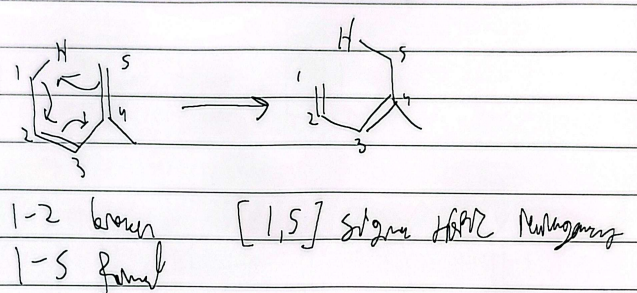 H H
1 5 1 5
2 3 4 2 3 4
1-2 broken [1,5] sigma
1-5 formed